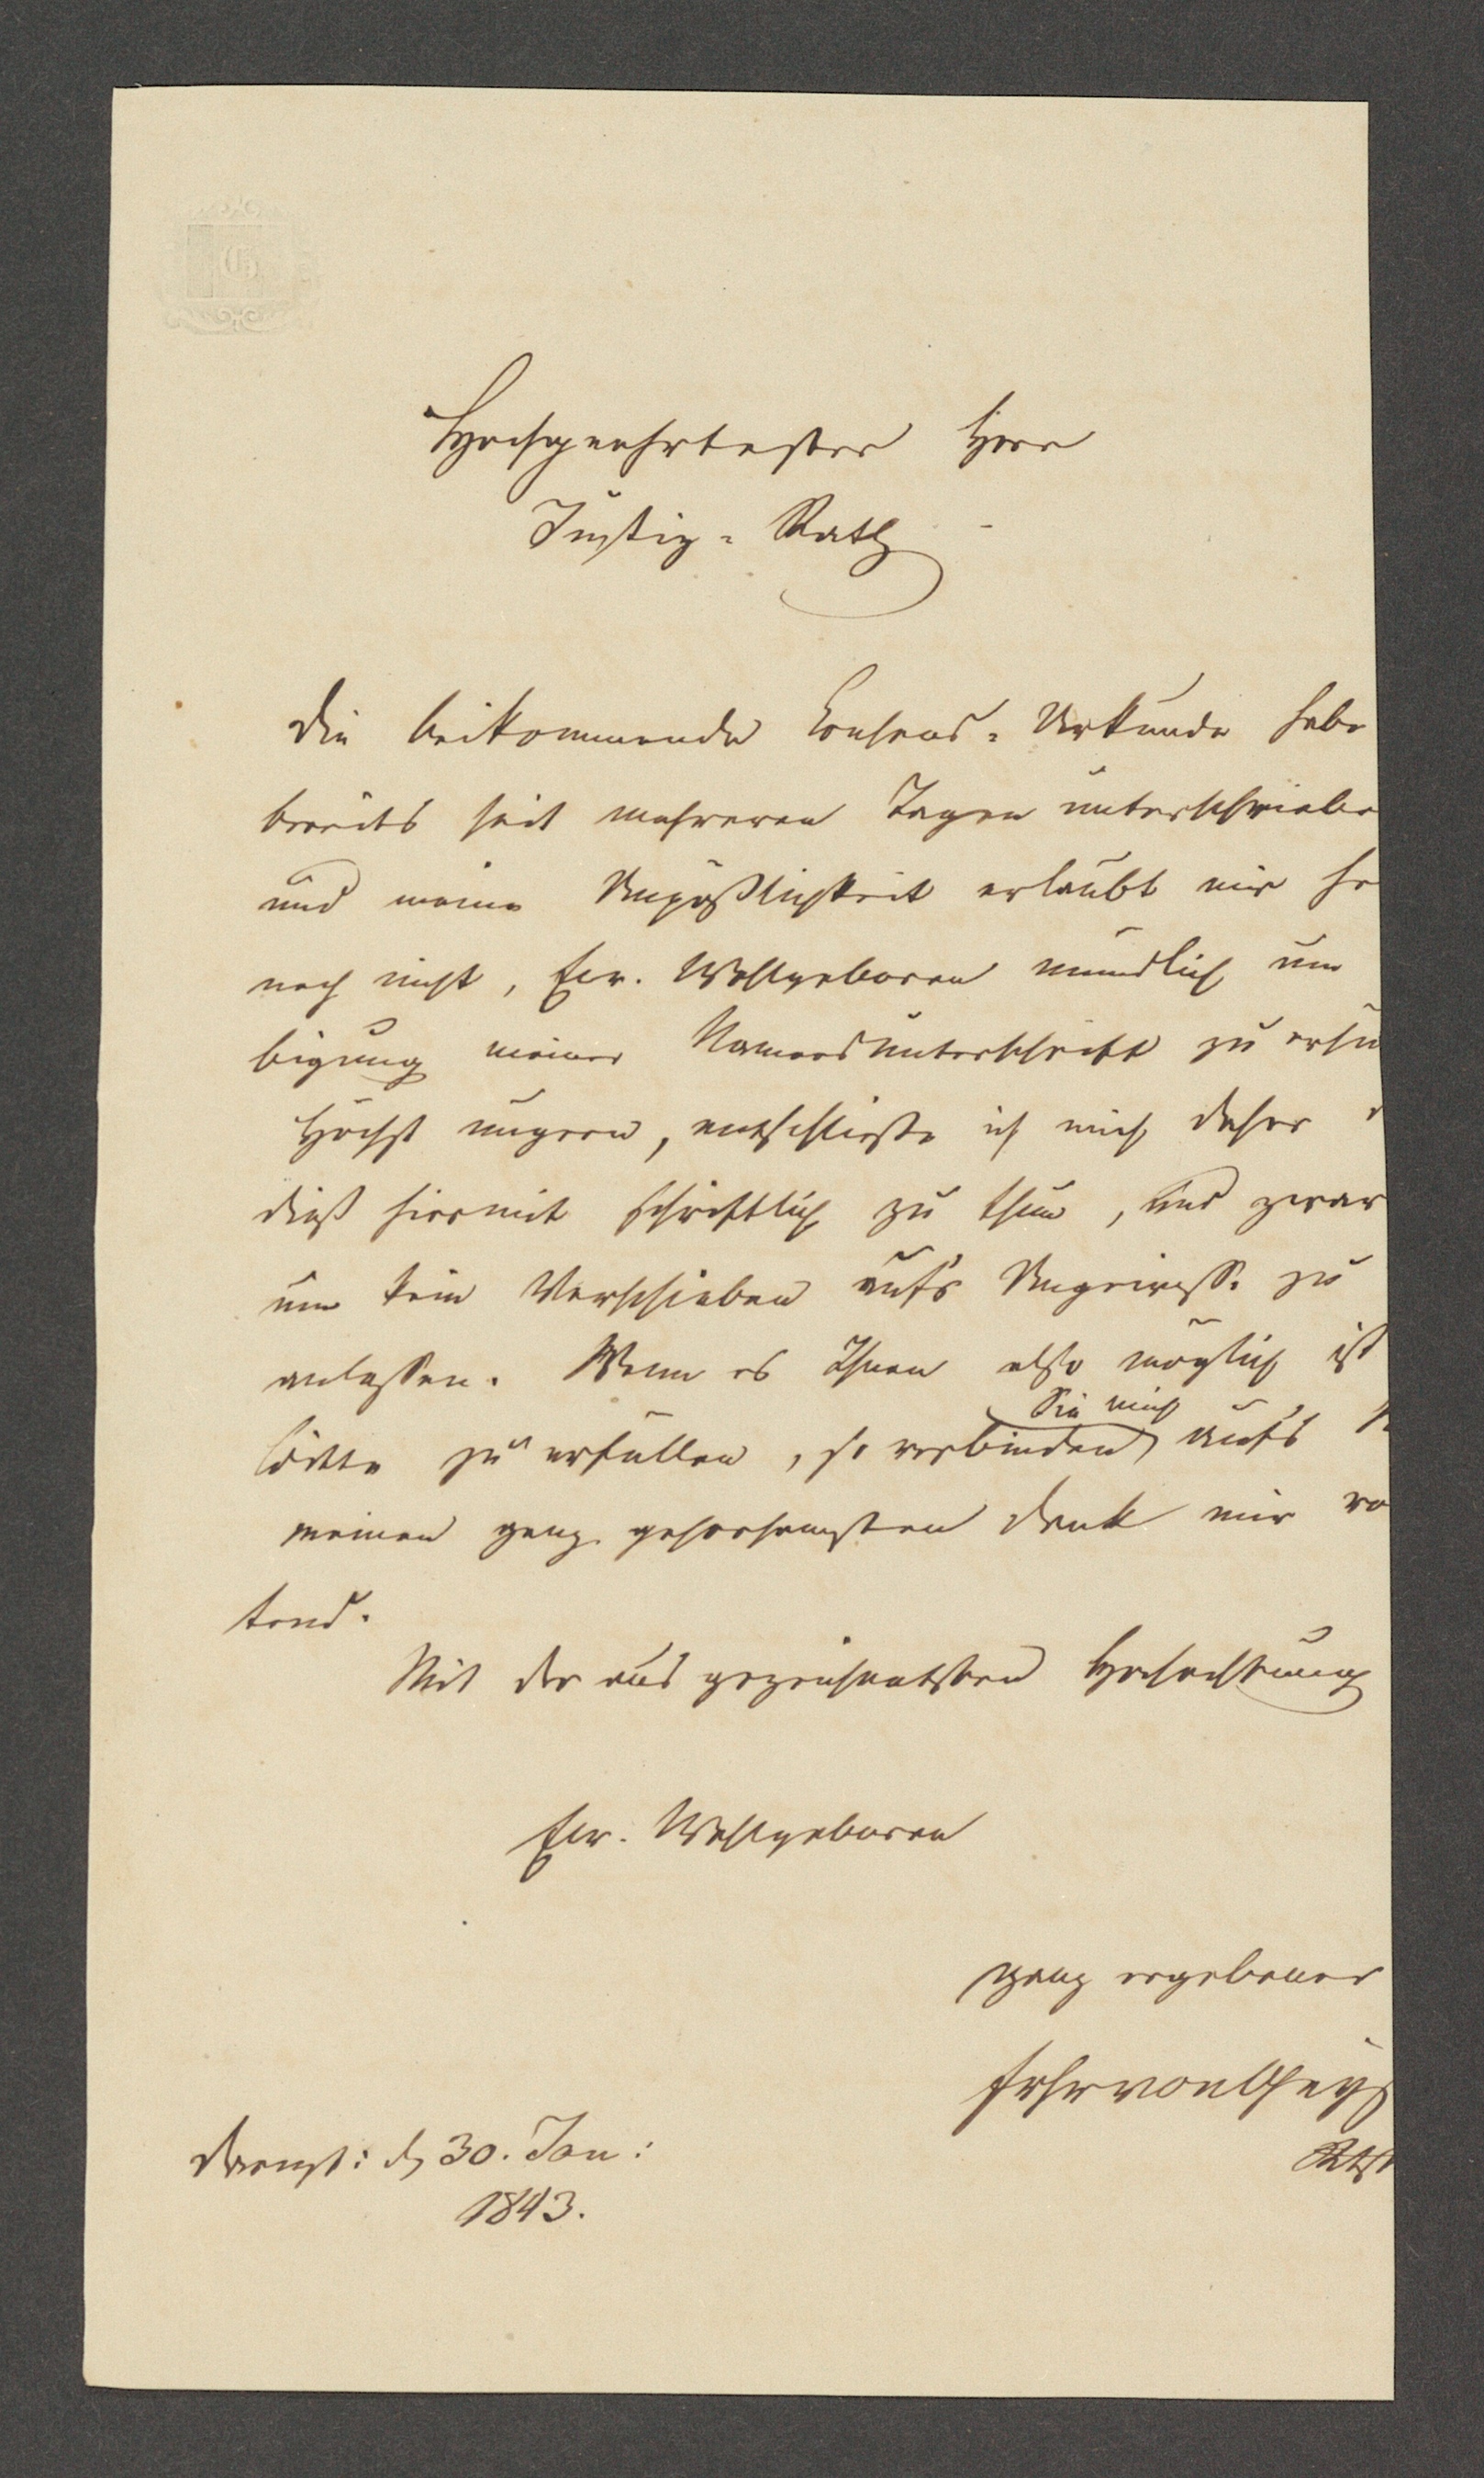 Hochgeehrtester Herr
Justiz-Rath
Die beikommende Consens-Urkunde habe
bereits seit mehreren Tagen unterschriebe
und meine Unpäßlichkeit erlaubt mir
noch nicht, Ew. Wohlgeboren mündlich um
bigung meiner Namensunterschrift zu ersu
Höchst ungern, entschließe ich mich daher
dieß hiermit schriftlich zu thun, und zwar
um kein Verschieben aufs Ungewisse zu
anlassen. Wenn es Ihnen also möglich ist
bitte zu erfüllen, so verbinden Sie mich aufs
meinen ganz gehorsamsten Dank mir vo
tend.
Mit der ausgezeichnetsten Hochachtung
Ew. Wohlgeboren
ganz ergebener
d 30. Jan:
1843.